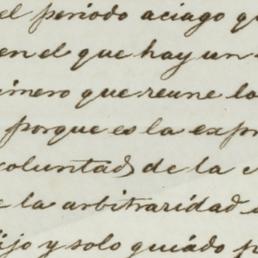 el periodo aciago q
en el que hay un
imero que reune lo
porque es la expr
voluntad de la
e la arbitraridad
ijo y solo guiádo p